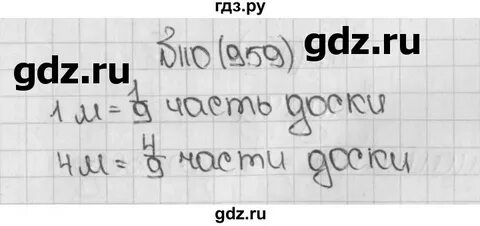 гдз.ру
№110 (959)
gdz.ru gdz.ru
1 м = 1/9 часть доски
4 м = 4/9 части доски
gdz.ru gdz.ru